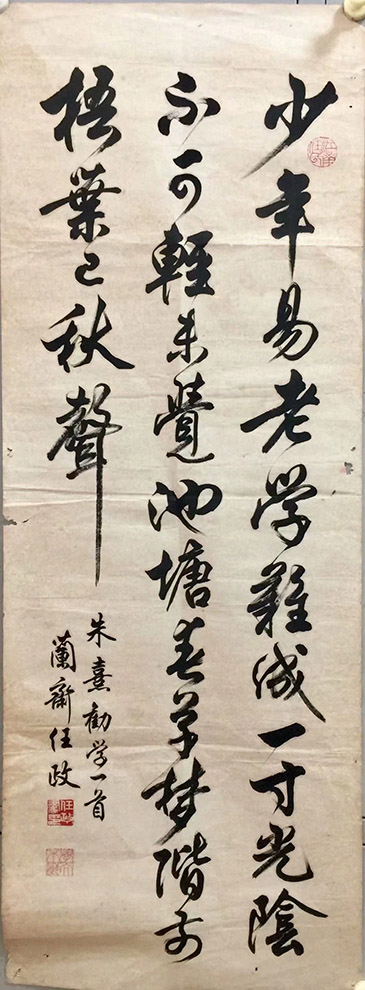 少年易老学難成一寸光陰
不可輕未覺池塘春草梦階前
梧葉已秋聲
朱熹勸学一首
蘭齋任政